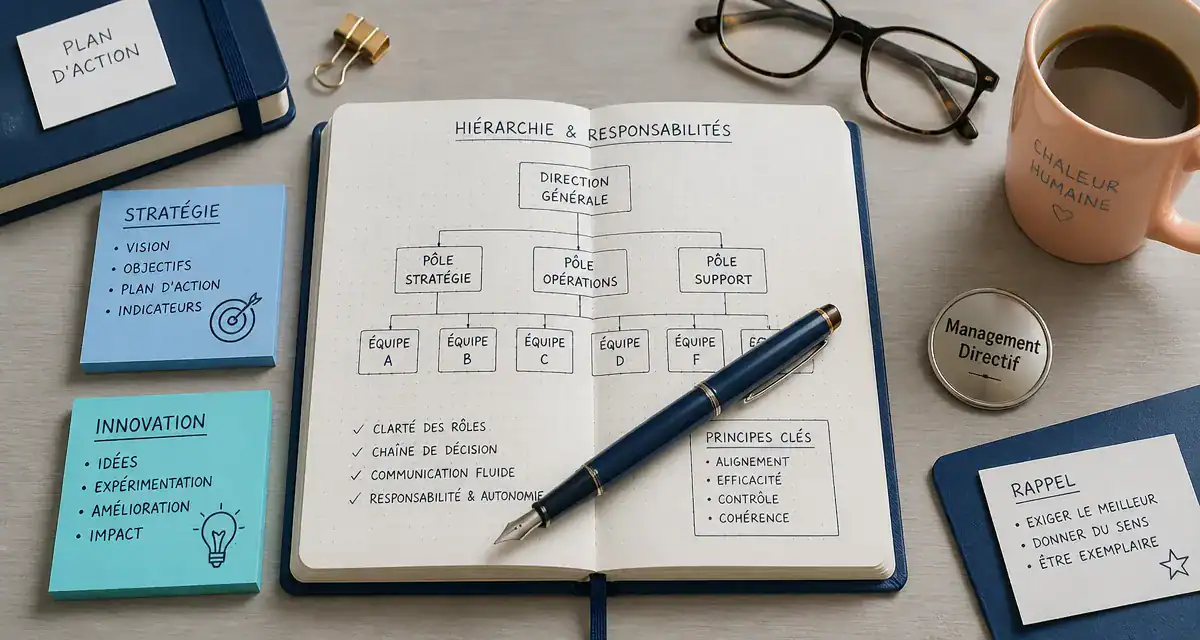 PLAN
D'ACTION
STRATÉGIE
• VISION
• OBJECTIFS
• PLAN D'ACTION
• INDICATEURS
INNOVATION
• IDÉES
• EXPÉRIMENTATION
• AMÉLIORATION
• IMPACT
HIÉRARCHIE & RESPONSABILITÉS
DIRECTION
GÉNÉRALE
PÔLE
STRATÉGIE
PÔLE
OPÉRATIONS
PÔLE
SUPPORT
ÉQUIPE
A
ÉQUIPE
B
ÉQUIPE
C
ÉQUIPE
D
ÉQUIPE
F
✓ CLARTÉ DES RÔLES
✓ CHAÎNE DE DÉCISION
✓ COMMUNICATION FLUIDE
✓ RESPONSABILITÉ & AUTONOMIE
PRINCIPES CLÉS
• ALIGNEMENT
• EFFICACITÉ
• CONTRÔLE
• COHÉRENCE
CHALEUR
HUMAINE
Management
Directif
RAPPEL
• EXIGER LE MEILLEUR
• DONNER DU SENS
• ÊTRE EXEMPLAIRE